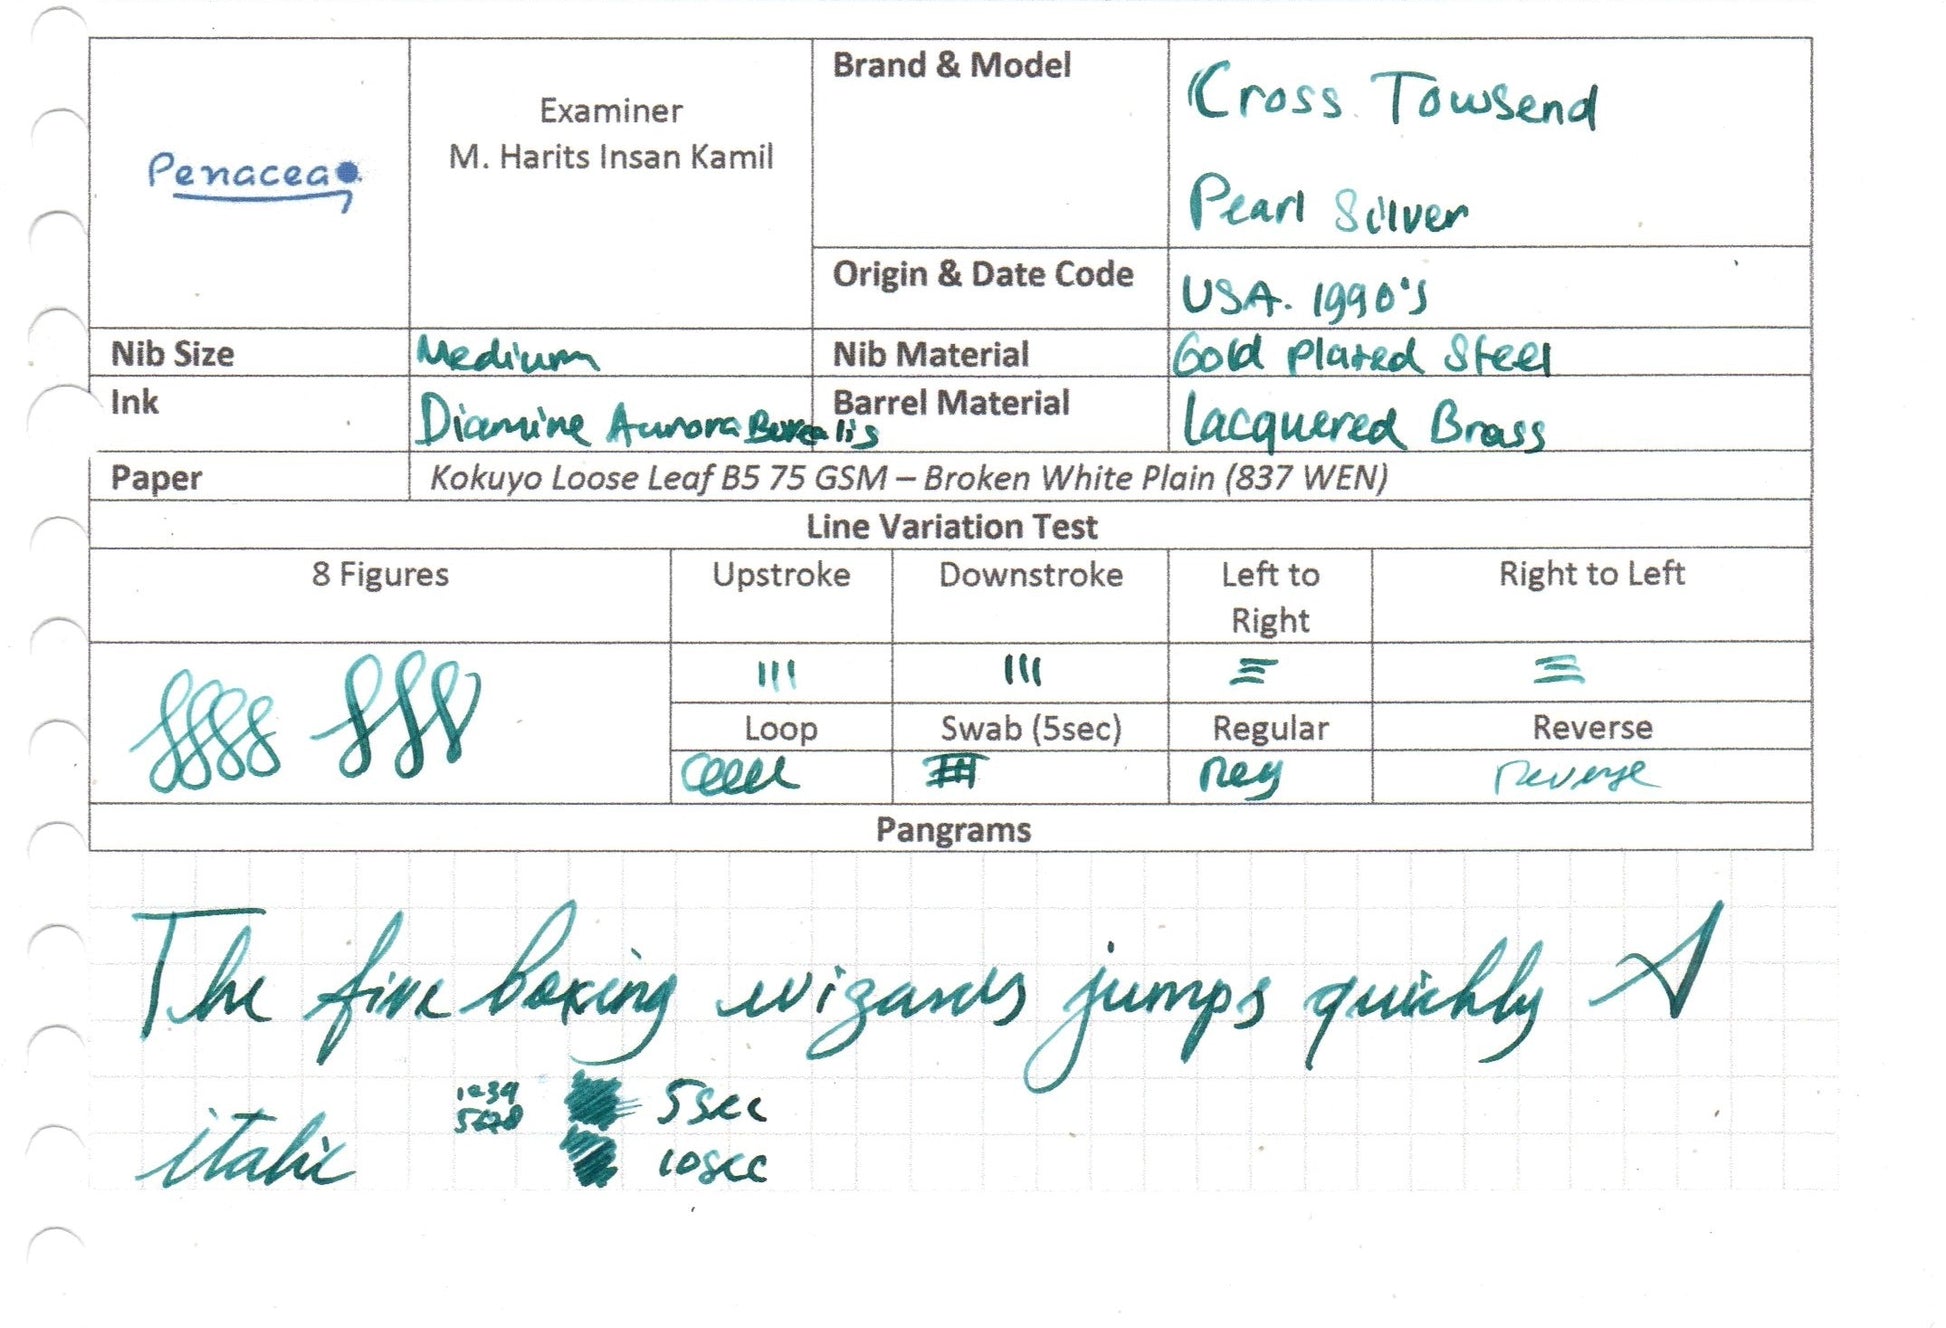 Penacea
Examiner
M. Harits Insan Kamil
Brand & Model
Cross Towsend
Pearl Silver
Origin & Date Code
USA. 1990's
Nib Size
Medium
Nib Material
Gold Plated Steel
Ink
Diamine Aurora Borealis
Barrel Material
Lacquered Brass
Paper
Kokuyo Loose Leaf B5 75 GSM – Broken White Plain (837 WEN)
Line Variation Test
8 Figures
Upstroke
Downstroke
Left to
Right
Right to Left
Loop
Swab (5sec)
Regular
Reverse
Reg
reverse
Pangrams
The five boxing wizards jumps quickly
5sec
italic
10sec